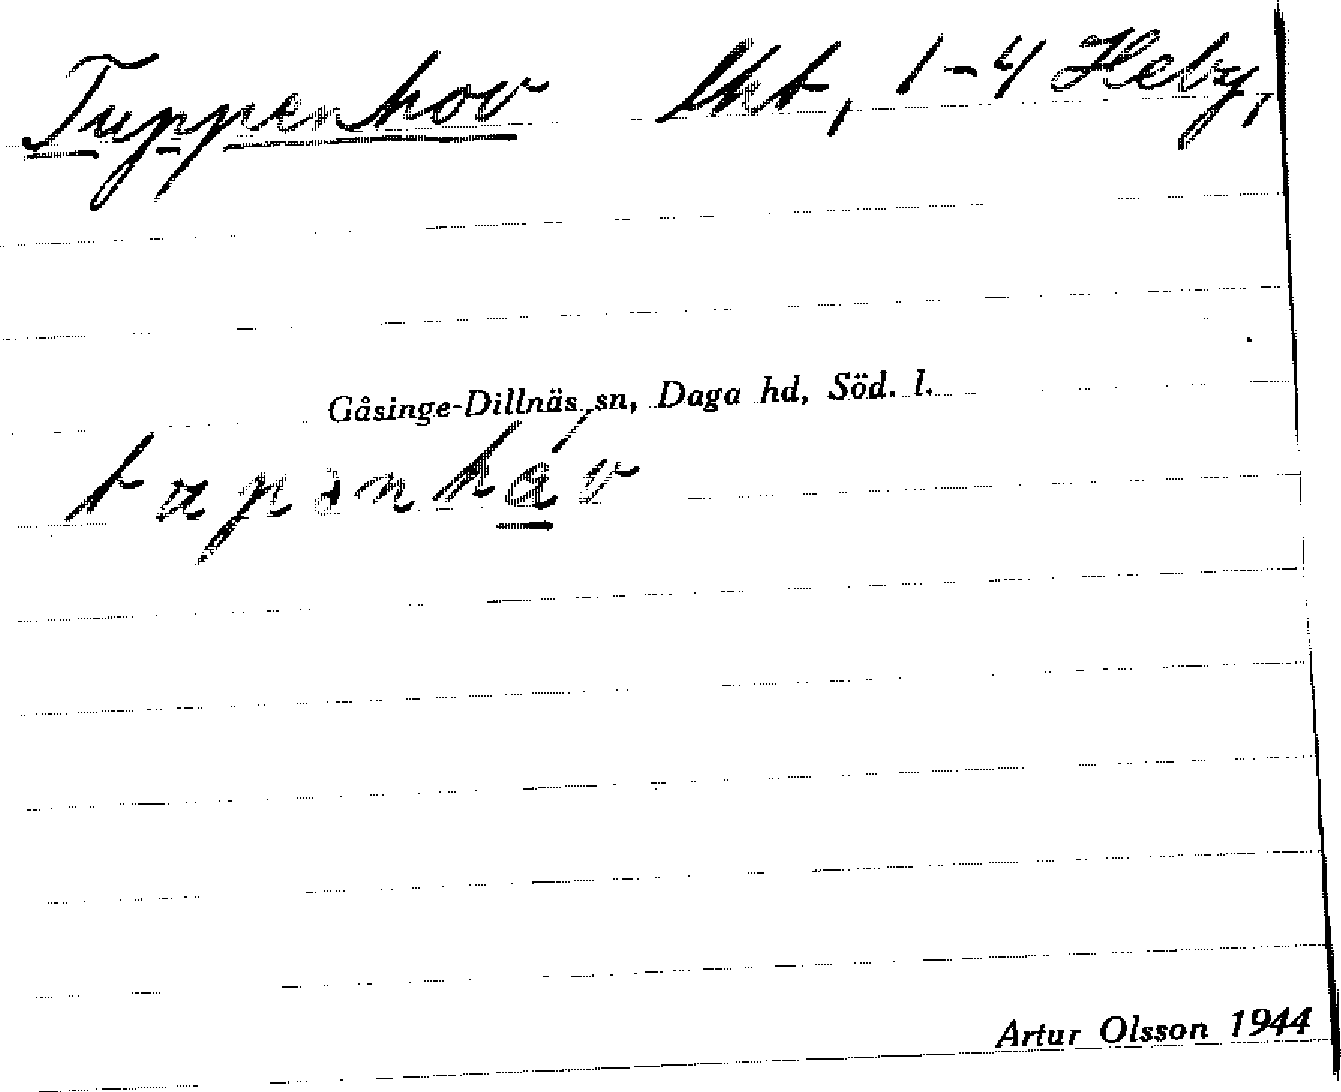 Tuppenhov lht, 1-4 Heby,
Gåsinge-Dillnäs sn, Daga hd, Söd. l.
Artur Olsson 1944